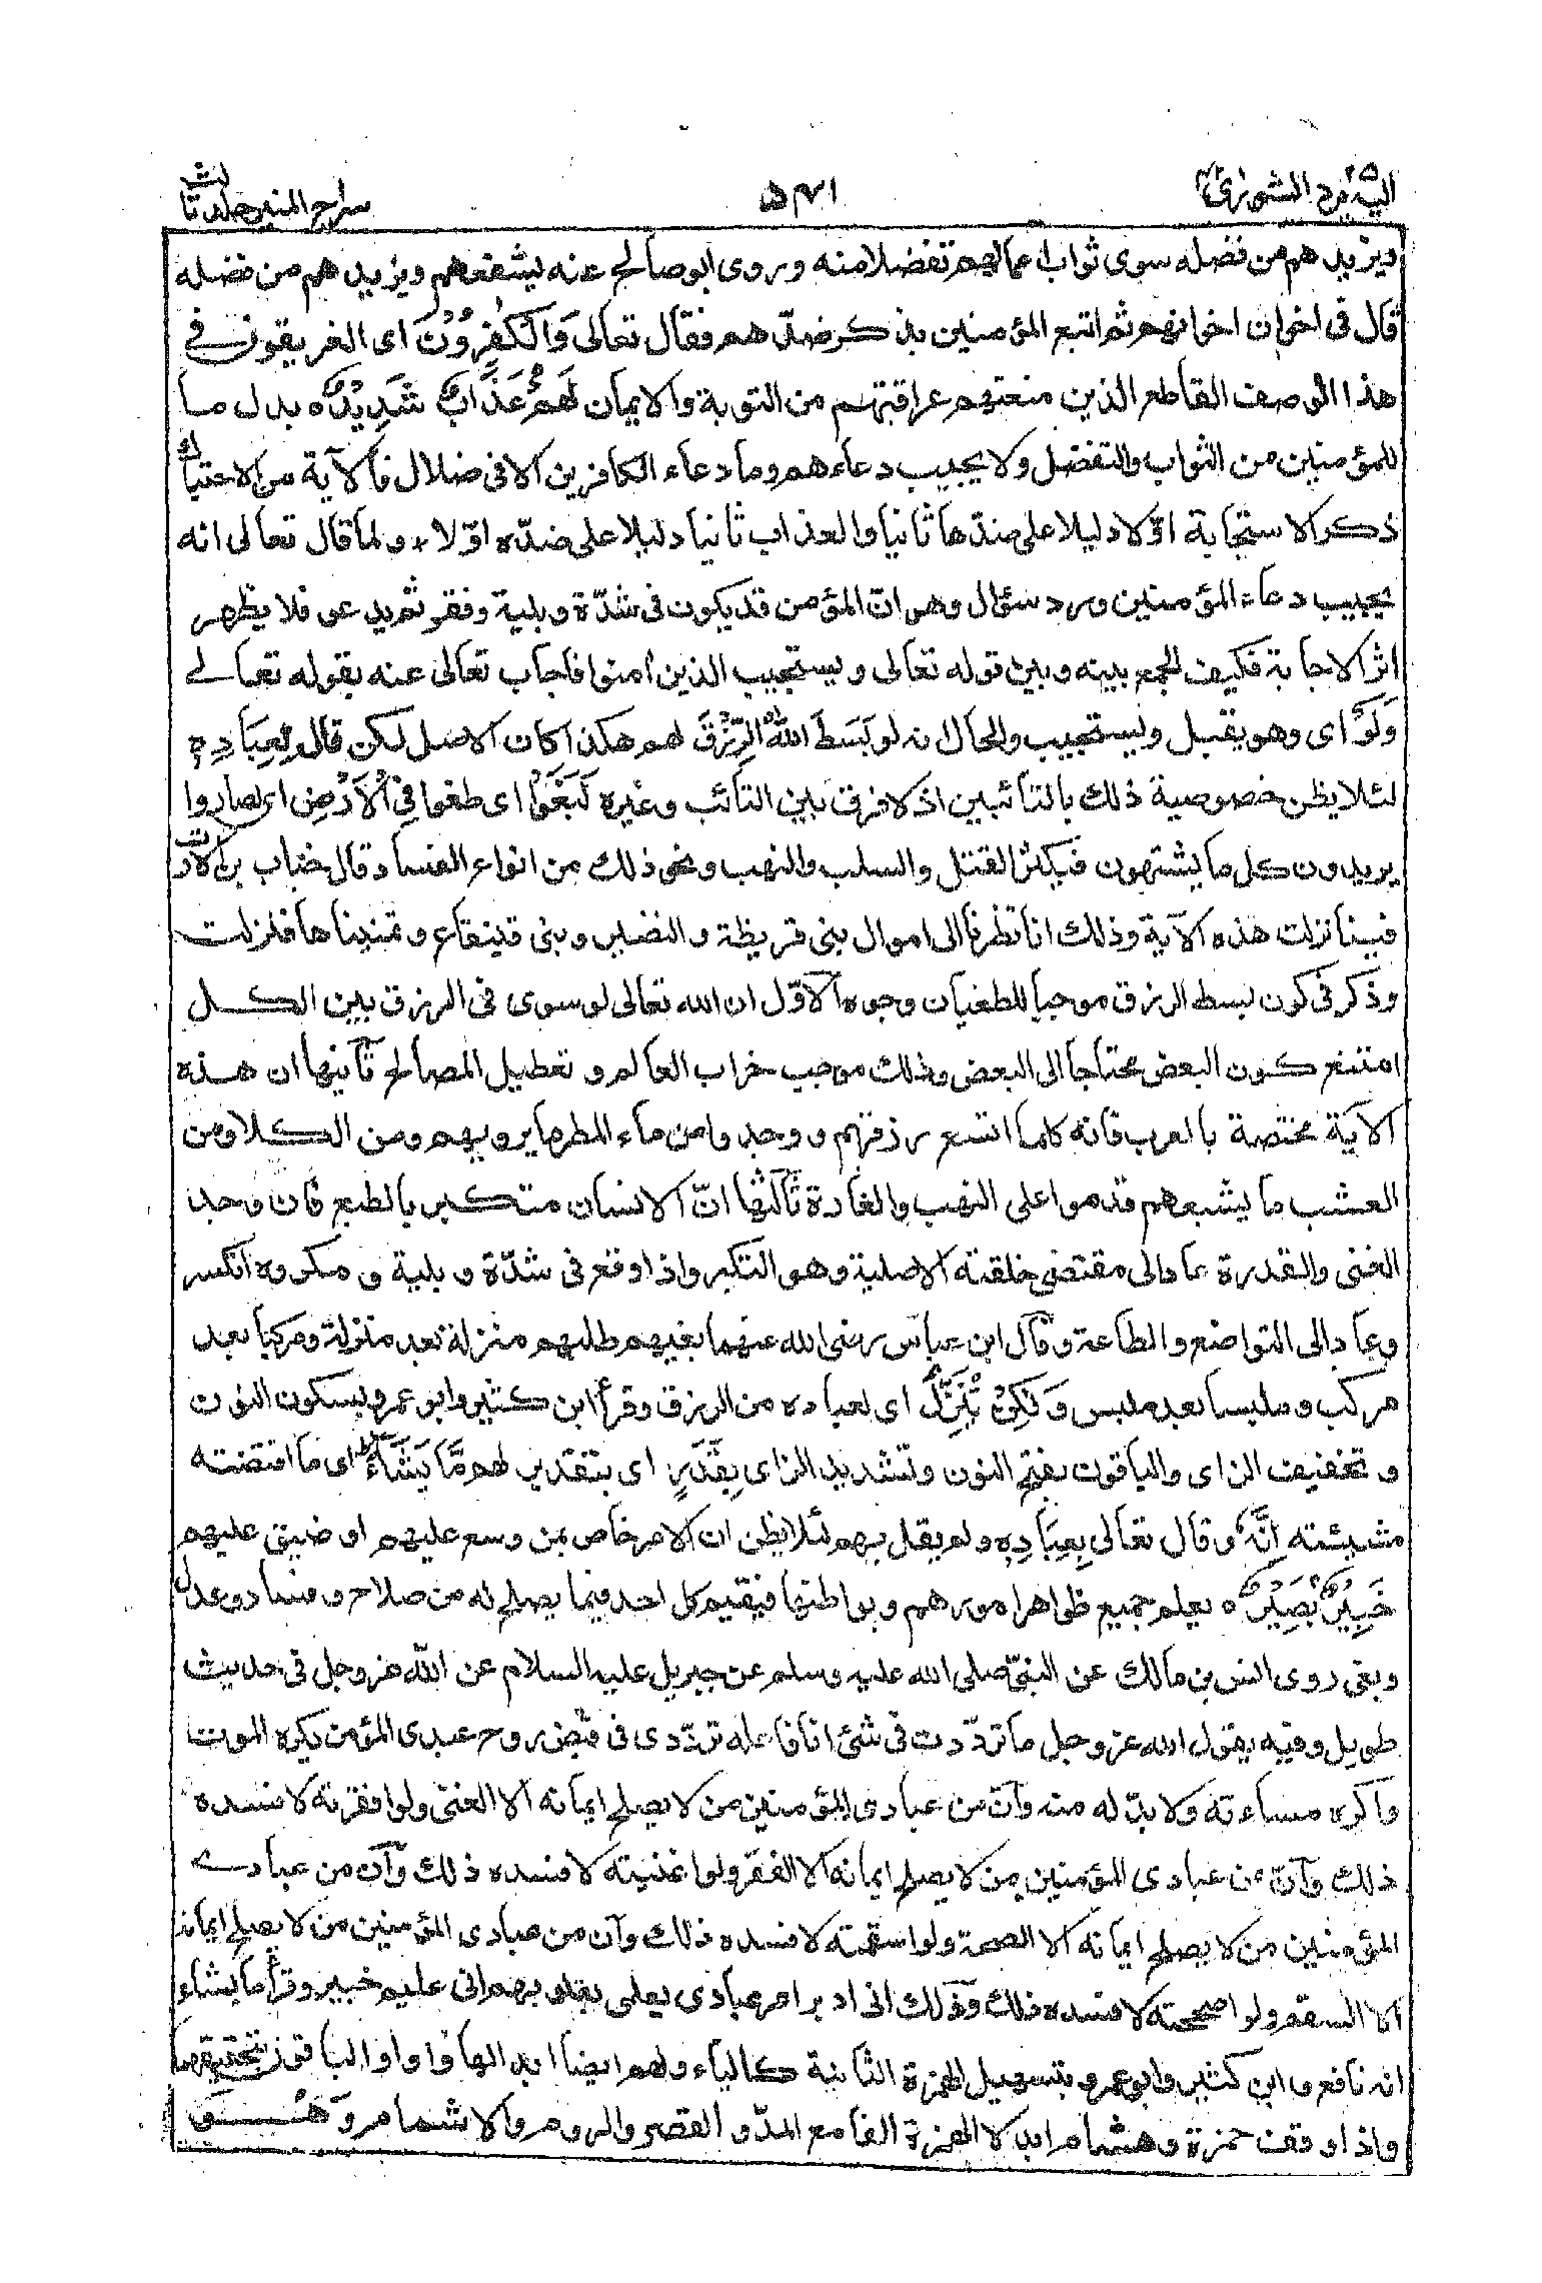 اليه يرد ٢٥ الشورى ٤٢
٥٤١
سراج المنير جلد ثالث
ويزيدهم من فضله سوى ثواب اعمالهم تفضلا منه وروى ابو صالح عنه يشفعهم ويزيدهم من فضله
قال فى اخوان اخوانهم ثم اتبع المؤمنين بذكر ضدّهم فقال تعالى وَالْكٰفِرُوْنَ اى الغريقون فے
هذا الوصف القاطع الذين منعتهم عراقتهم من التوبة والايمان لَهُمْ عَذَابٌ شَدِيْدٌ ه بدل ما
للمؤمنين من الثواب والتفضل ولا يجيب دعاءهم وما دعاء الكافرين الا فى ضلال فالآية من الاحتباك
ذكر الاستجابة اوّلا دليلا على ضدّها ثانيا والعذاب ثانيا دليلا على ضدّه اوّلا ٭ ولما قال تعالى انه
يجيب دعاء المؤمنين ورد سؤال وهو انّ المؤمن قد يكون فى شدّة وبلية وفقر ثم يدعو فلا يظهر
اثر الاجابة فكيف الجمع بينه وبين قوله تعالى ويستجيب الذين اٰمنوا فاجاب تعالى عنه بقوله تعالے
وَلَوْ اى وهو يقبل ويستجيب والحال انه لو بَسَطَ اللّٰهُ الرِّزْقَ لهم هكذا كان الاصل لكن قال لِعِبَادِهٖ
لئلا يظن خصوصية ذلك بالتائبين اذ لا فرق بين التائب وغيره لَبَغَوْا اى طغوا فِى الْاَرْضِ اى لصاروا
يريدون كل ما يشتهون فيكثر القتل والسلب والنهب ونحو ذلك من انواع الفساد قال خباب بن الارت
فينا نزلت هذه الآية وذلك انا نظرنا الى اموال بنى قريظة والنضير وبنى قينقاع وتمنيناها فنزلت
وذكر فى كون بسط الرزق موجبا للطغيان وجوه الاوّل ان الله تعالى لو سوى فى الرزق بين الكل
امتنع كون البعض محتاجا الى البعض وذلك موجب خراب العالم وتعطيل المصالح ثانيها ان هذه
الآية مختصة بالعرب فانه كلما اتسع رزقهم ووجدوا من ماء المطر ما يرويهم ومن الكلا ومن
العشب ما يشبعهم قدموا على النهب والغارة ثالثها انّ الانسان متكبر بالطبع فان وجد
الغنى والقدرة عاد الى مقتضى خلقته الاصلية وهو التكبر واذا وقع فى شدّة وبلية ومكروه انكسر
وعاد الى التواضع والطاعة وقال ابن عباس رضى الله عنهما بغيهم طلبهم منزلة بعد منزلة ومركبا بعد
مركب وملبسا بعد ملبس وَلٰكِنْ يُّنَزِّلُ اى لعباده من الرزق وقرأ ابن كثير وابو عمرو بسكون النون
وتخفيف الزاى والباقون بفتح النون وتشديد الزاى بِقَدَرٍ اى بتقدير لهم مَّا يَشَآءُ ط اى ما اقتضته
مشيئته اِنَّهٗ وقال تعالى بِعِبَادِهٖ ولم يقل بهم لئلا يظن ان الامر خاص بمن وسع عليهم او ضيق عليهم
خَبِيْرٌ بَصِيْرٌ ه يعلم جميع ظواهر امورهم وبواطنها فيقيم كل احد فيما يصلح له من صلاح وفساد وعدل
وبغى روى انس بن مالك عن النبى صلى الله عليه وسلم عن جبريل عليه السلام عن الله عز وجل فى حديث
طويل وفيه يقول الله عز وجل ما تردّدت فى شئ انا فاعله تردّدى فى قبض روح عبدى المؤمن يكره الموت
واكره مساءته ولا بدّ له منه وان من عبادى المؤمنين من لا يصلح ايمانه الا الغنى ولو افقرته لافسده
ذلك وانّ من عبادى المؤمنين من لا يصلح ايمانه الا الفقر ولو اغنيته لافسده ذلك وان من عبادے
المؤمنين من لا يصلح ايمانه الا الصحة ولو اسقمته لافسده ذلك وان من عبادى المؤمنين من لا يصلح ايمانه
الا السقم ولو اصححته لافسده ذلك وذلك انى ادبر امر عبادى بعلمى بقلوبهم انى عليم خبير وقرأ ما يشاء
انه نافع وابن كثير وابو عمرو بتسهيل الهمزة الثانية كالياء ولهم ايضا ابدالها واوا والباقون بتحقيقهما
واذا وقف حمزة وهشام ابدلا الهمزة الفا مع المدّ والقصر والروم والاشمام وَهُوَ